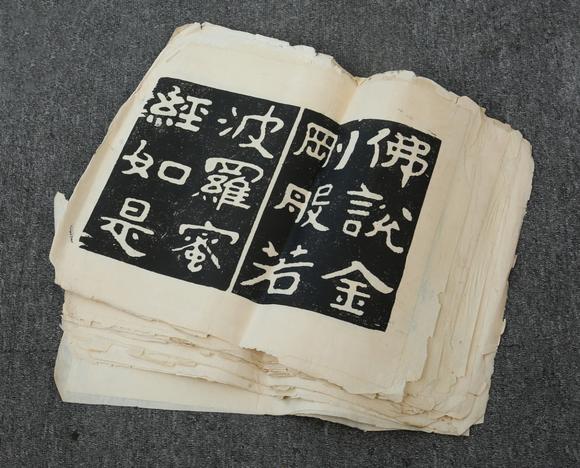 佛說金
剛般若
波羅蜜
經如是